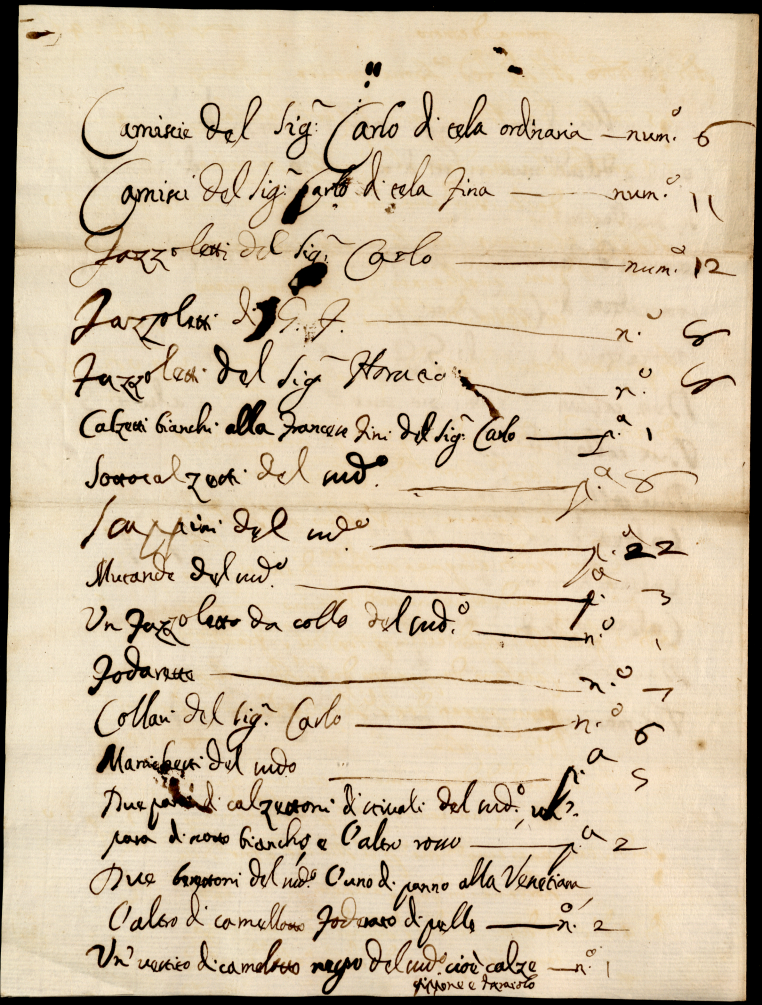 Camiscie del Sig.r Carlo di tela ordinaria — num.o 6
Camisci del Sig.r Carlo di tela fina — num.o 11
Fazzoletti del Sig.r Carlo — num.o 12
Fazzoletti di G. F. — n.o 8
Fazzoletti del Sig.r Horacio — n.o 8
Calzetti bianchi alla francese fini del Sig.r Carlo — p.a 1
Sottocalzetti del md.o — p.a 6
Scappini del md.o — p.a 22
Mutande del md.o — p.a 3
Un fazzoletto da collo del md.o — n.o 1
Foderette — n.o 7
Collari del Sig.r Carlo — n.o 6
Manichetti del mdo — p.a 5
Due para di calzettoni di stivali del md.o,
para di notto bianche e l'altro rosso — p.a 2
Due del md.o l'uno di panno alla Venetiana,
l'altro di camellotto foderato di pelle — n.o 2
Un' vestito di camelotto negro del md.o cioè calze — n.o 1
gippone e